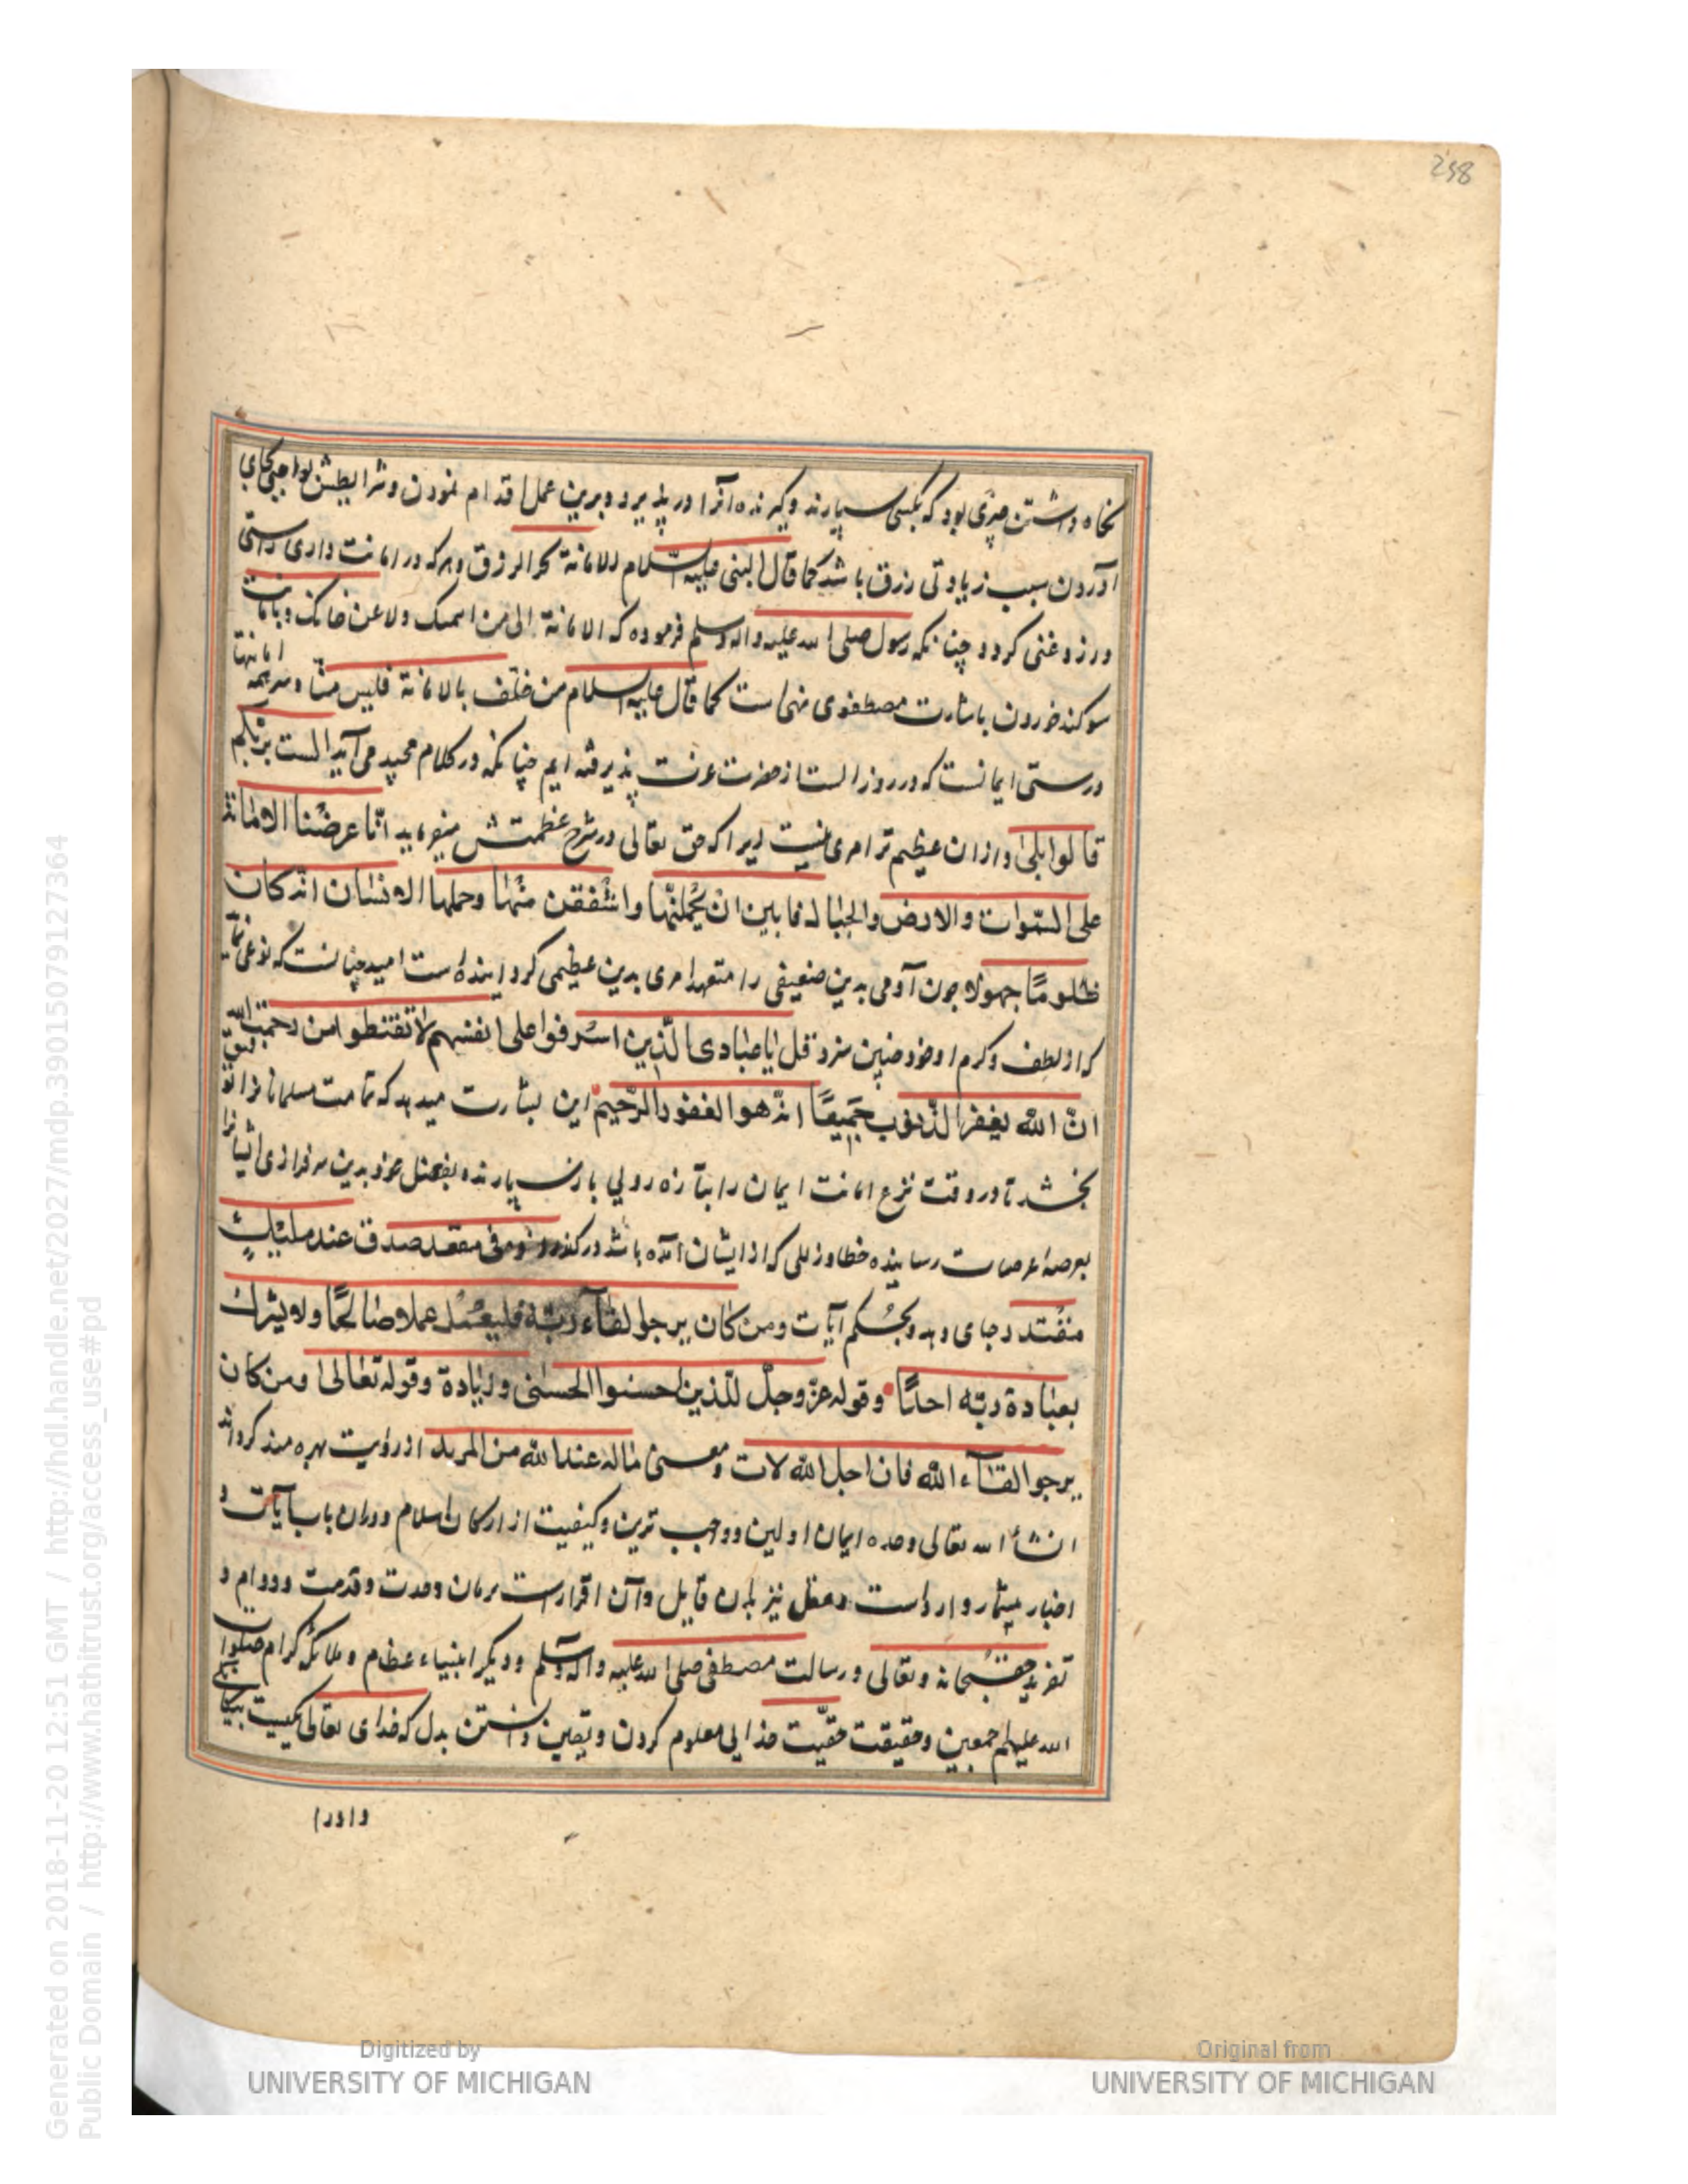 298
نکاه داشتن چیزی بود که بکسی سپارند و کیرنده آنرا در پذیرد و برین عمل اقدام نمودن و شرایطش بواجبی بجای
آوردن سبب زیادتی رزق باشد کما قال النبی علیه السلام الامانة تجر الرزق و هرکه در امانت داری راستی
ورزد غنی کردد چنانکه رسول صلی الله علیه واله وسلم فرموده که الامانة الی من ولا من خانک و بامانت
سوکند خوردن باشارت مصطفوی منهی است کما قال علیه السلام من حلف بالامانة فلیس منّا و سرهمه امانتها
درستی ایمانست که در روز الست از حضرت عزت پذیرفته ایم چنانکه در کلام مجید می آید الست بربّکم
قالوا بلی و ازان عظیم تر امری نیست زیرا که حق تعالی در شرح عظمتش میفرماید انّا عرضنا الامانة
علی السّموات والارض والجبال فابین ان یحملنّها واشفقن منها وحملها الانسان انه کان
ظلومًا جهولا چون آدمی بدین ضعیفی را متعهد امری بدین عظیمی کردانیده است امید چنانست که نوعی نماید
که از لطف و کرم او خود چنین سزد قل یا عبادی الّذین اسرفوا علی انفسهم لا تقنطوا من رحمة الله
انّ الله یغفر الذّنوب جمیعًا انه هو الغفور الرّحیم این بشارت میدهد که تمامت مسلمانانرا توفیق
بخشد تا در وقت نزع امانت ایمان را بتازه رویی باز سپارند و بفضل خود بدین سرفرازی ایشانرا
بعرصهٔ عرصات رسانیده خطا و زللی که از ایشان آمده باشد درکذرد و فی مقعد صدق عند ملیک
مقتدر جای دهد و بحکم آیات ومن کان یرجوا لقاء ربّه فلیعمل عملا صالحًا ولا یشرک
بعبادة ربّه احدًا وقوله عزّ وجلّ للّذین احسنوا الحسنی وزیادة وقوله تعالی ومن کان
یرجوا لقاء الله فان اجل الله لات ومعنی ماله عند الله من المزید از رؤیت بهره مند کرداند
انشأ الله تعالی وحده ایمان اولین و واجب ترین وکیفیت از ارکان اسلام و دران باب آیات و
اخبار بیشمار وارد است و عقل نیز بدان قایل و آن اقرارست بزبان وحدت و قدمت و دوام و
تفرید حق سبحانه وتعالی و رسالت مصطفی صلی الله علیه واله وسلم و دیکر انبیاء عظام و ملائکه کرام صلوات
الله علیهم اجمعین و حقیقت حقیّت خدایی معلوم کردن و بیقین دانستن بدل که خدای تعالی یکیست
واورا
Generated on 2018-11-20 12:51 GMT / http://hdl.handle.net/2027/mdp.39015079127364
Public Domain / http://www.hathitrust.org/access_use#pd
Digitized by
UNIVERSITY OF MICHIGAN
Original from
UNIVERSITY OF MICHIGAN